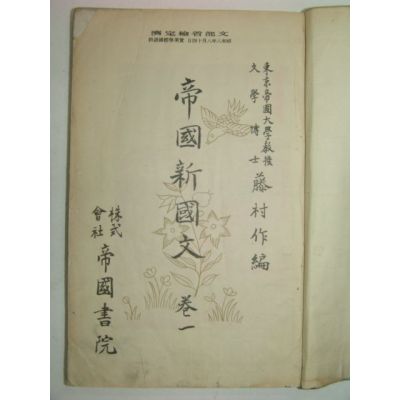 文部省檢定濟
東京帝國大學教授
文學博士
藤村作編
帝國新國文 卷一
株式
會社
帝國書院